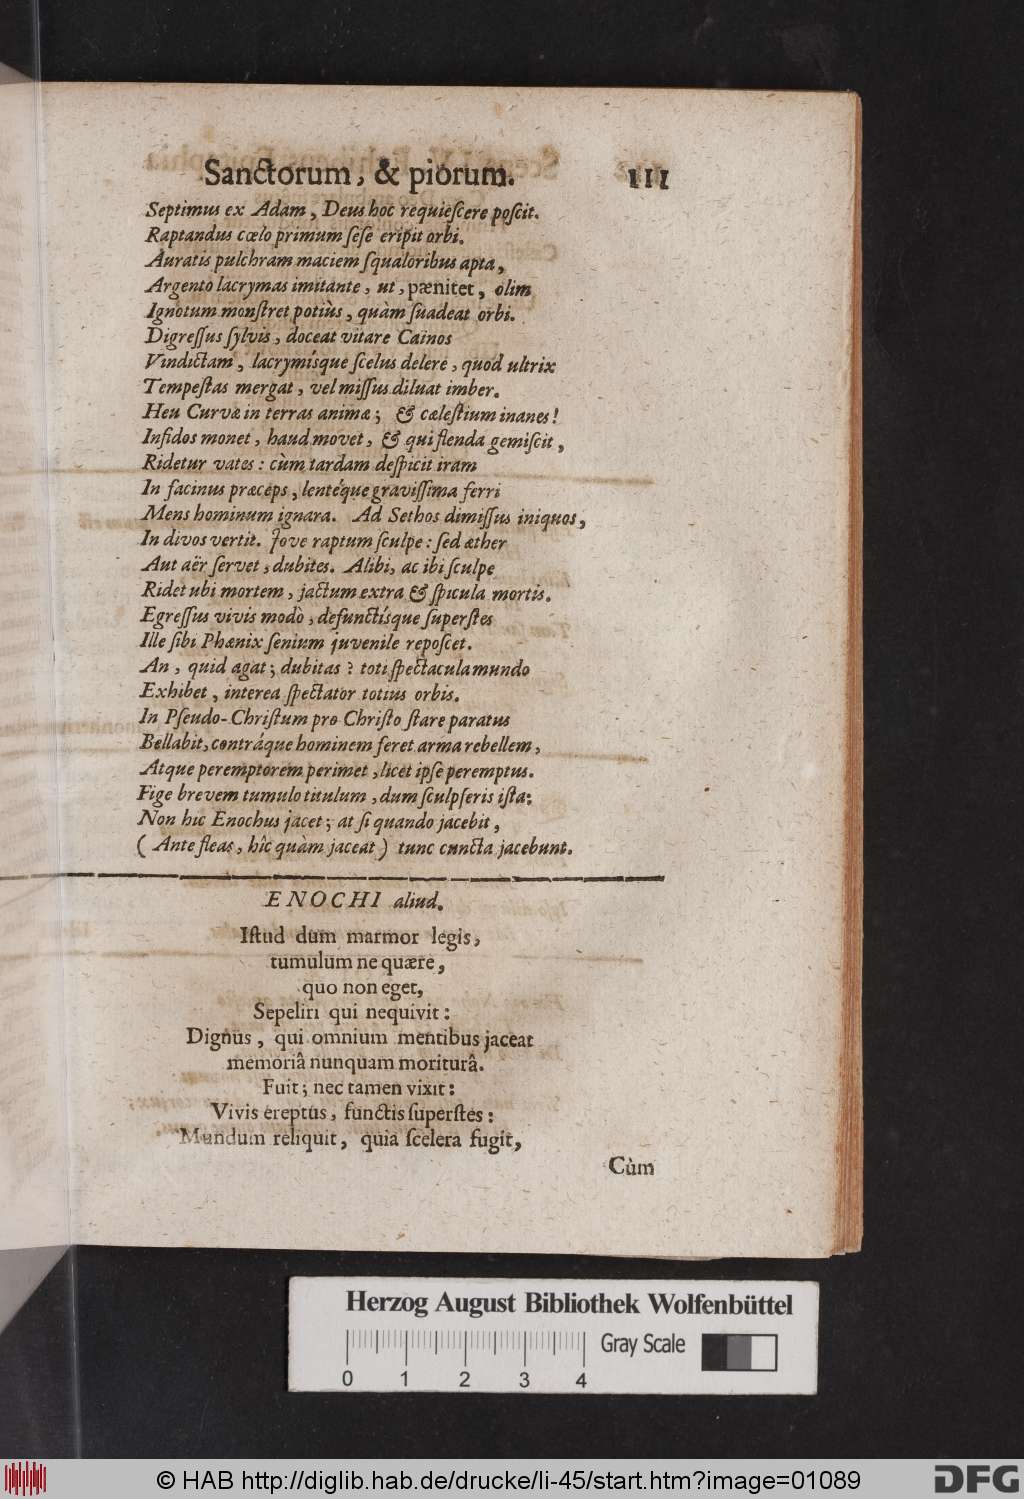 Sanctorum, & piorum. 111
Septimus ex Adam, Deus hoc requieſcere poſcit.
Raptandus cœlo primum ſeſe eripit orbi.
Auratis pulchram maciem ſqualoribus apta,
Argento lacrymas imitante, ut, pænitet, olim
Ignotum monſtret potiùs, quàm ſuadeat orbi.
Digreſſus ſylvis, doceat vitare Caïnos
Vindictam, lacrymísque ſcelus delere, quod ultrix
Tempeſtas mergat, vel miſſus diluat imber.
Heu Curvæ in terras animæ; & cæleſtium inanes!
Infidos monet, haud movet, & qui flenda gemiſcit,
Ridetur vates: cùm tardam deſpicit iram
In facinus præceps, lentéque graviſſima ferri
Mens hominum ignara. Ad Sethos dimiſſus iniquos,
In divos vertit. Jove raptum ſculpe: ſed æther
Aut aër ſervet, dubites. Alibi, ac ibi ſculpe
Ridet ubi mortem, jactum extra & ſpicula mortis.
Egreſſus vivis modò, defunctísque ſuperſtes
Ille ſibi Phœnix ſenium juvenile repoſcet.
An, quid agat; dubitas? toti ſpectacula mundo
Exhibet, interea ſpectator totius orbis.
In Pſeudo-Chriſtum pro Chriſto ſtare paratus
Bellabit, contráque hominem feret arma rebellem,
Atque peremptorem perimet, licet ipſe peremptus.
Fige brevem tumulo titulum, dum ſculpſeris iſta:
Non hic Enochus jacet; at ſi quando jacebit,
(Ante fleas, hîc quàm jaceat) tunc cuncta jacebunt.
ENOCHI aliud.
Iſtud dum marmor legis,
tumulum ne quære,
quo non eget,
Sepeliri qui nequivit:
Dignus, qui omnium mentibus jaceat
memoriâ nunquam moriturâ.
Fuit; nec tamen vixit:
Vivis ereptus, functis ſuperſtes:
Mundum reliquit, quia ſcelera fugit,
Cùm
Herzog August Bibliothek Wolfenbüttel
Gray Scale
0 1 2 3 4
© HAB http://diglib.hab.de/drucke/li-45/start.htm?image=01089
DFG